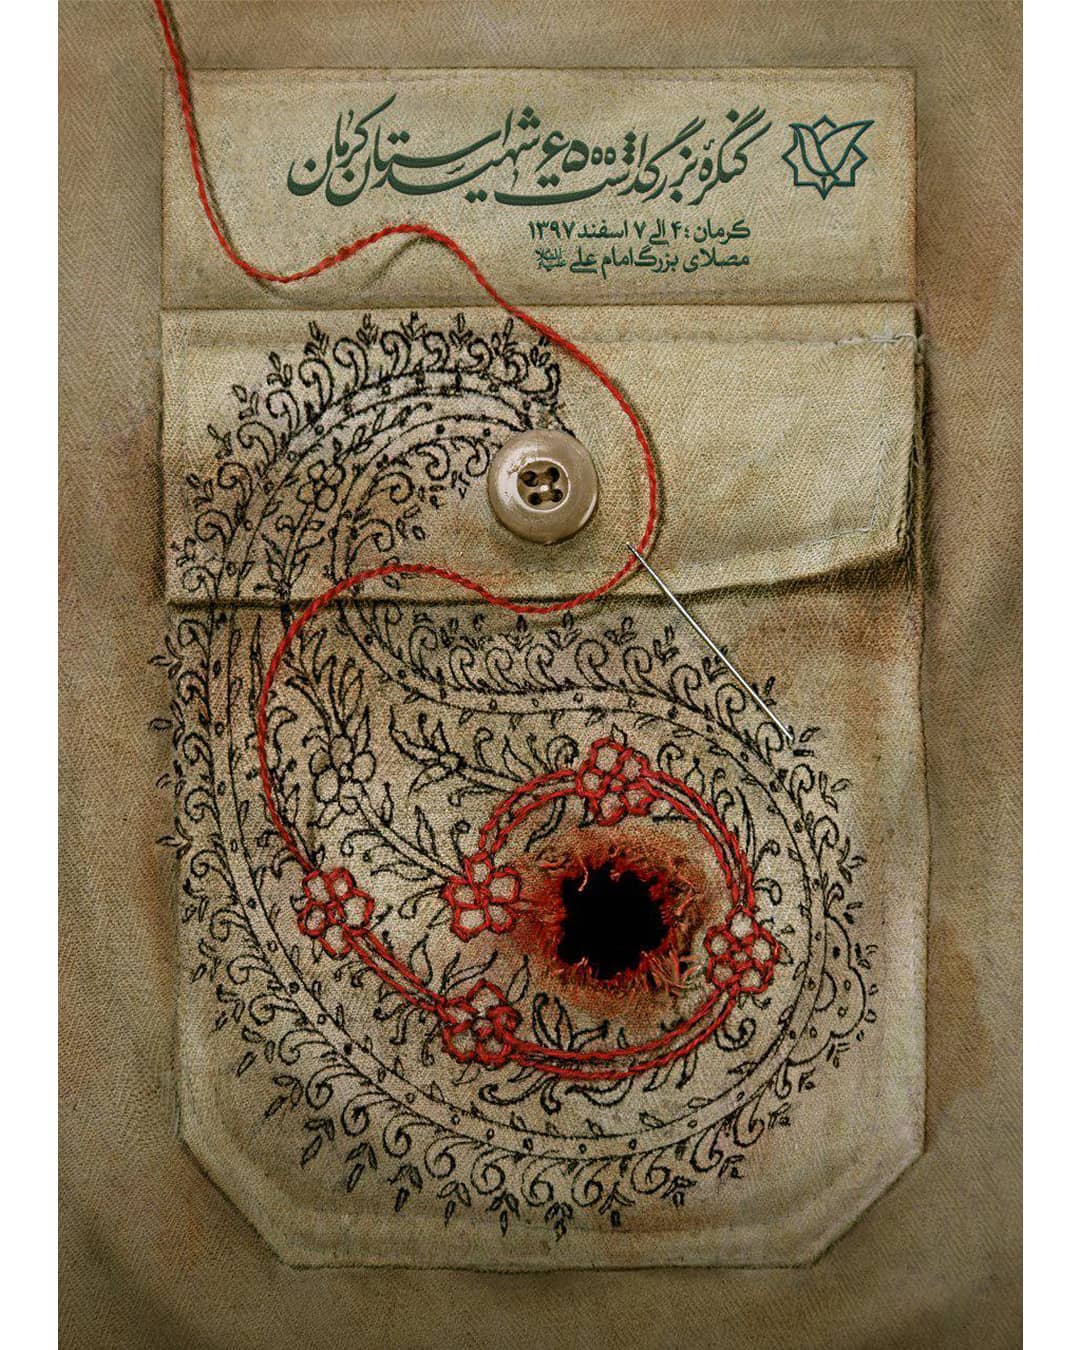 کنگره بزرگداشت ۶۵۰۰ شهید استان کرمان
کرمان: ۴ الی ۷ اسفند ۱۳۹۷
مصلای بزرگ امام علی علیه‌السلام